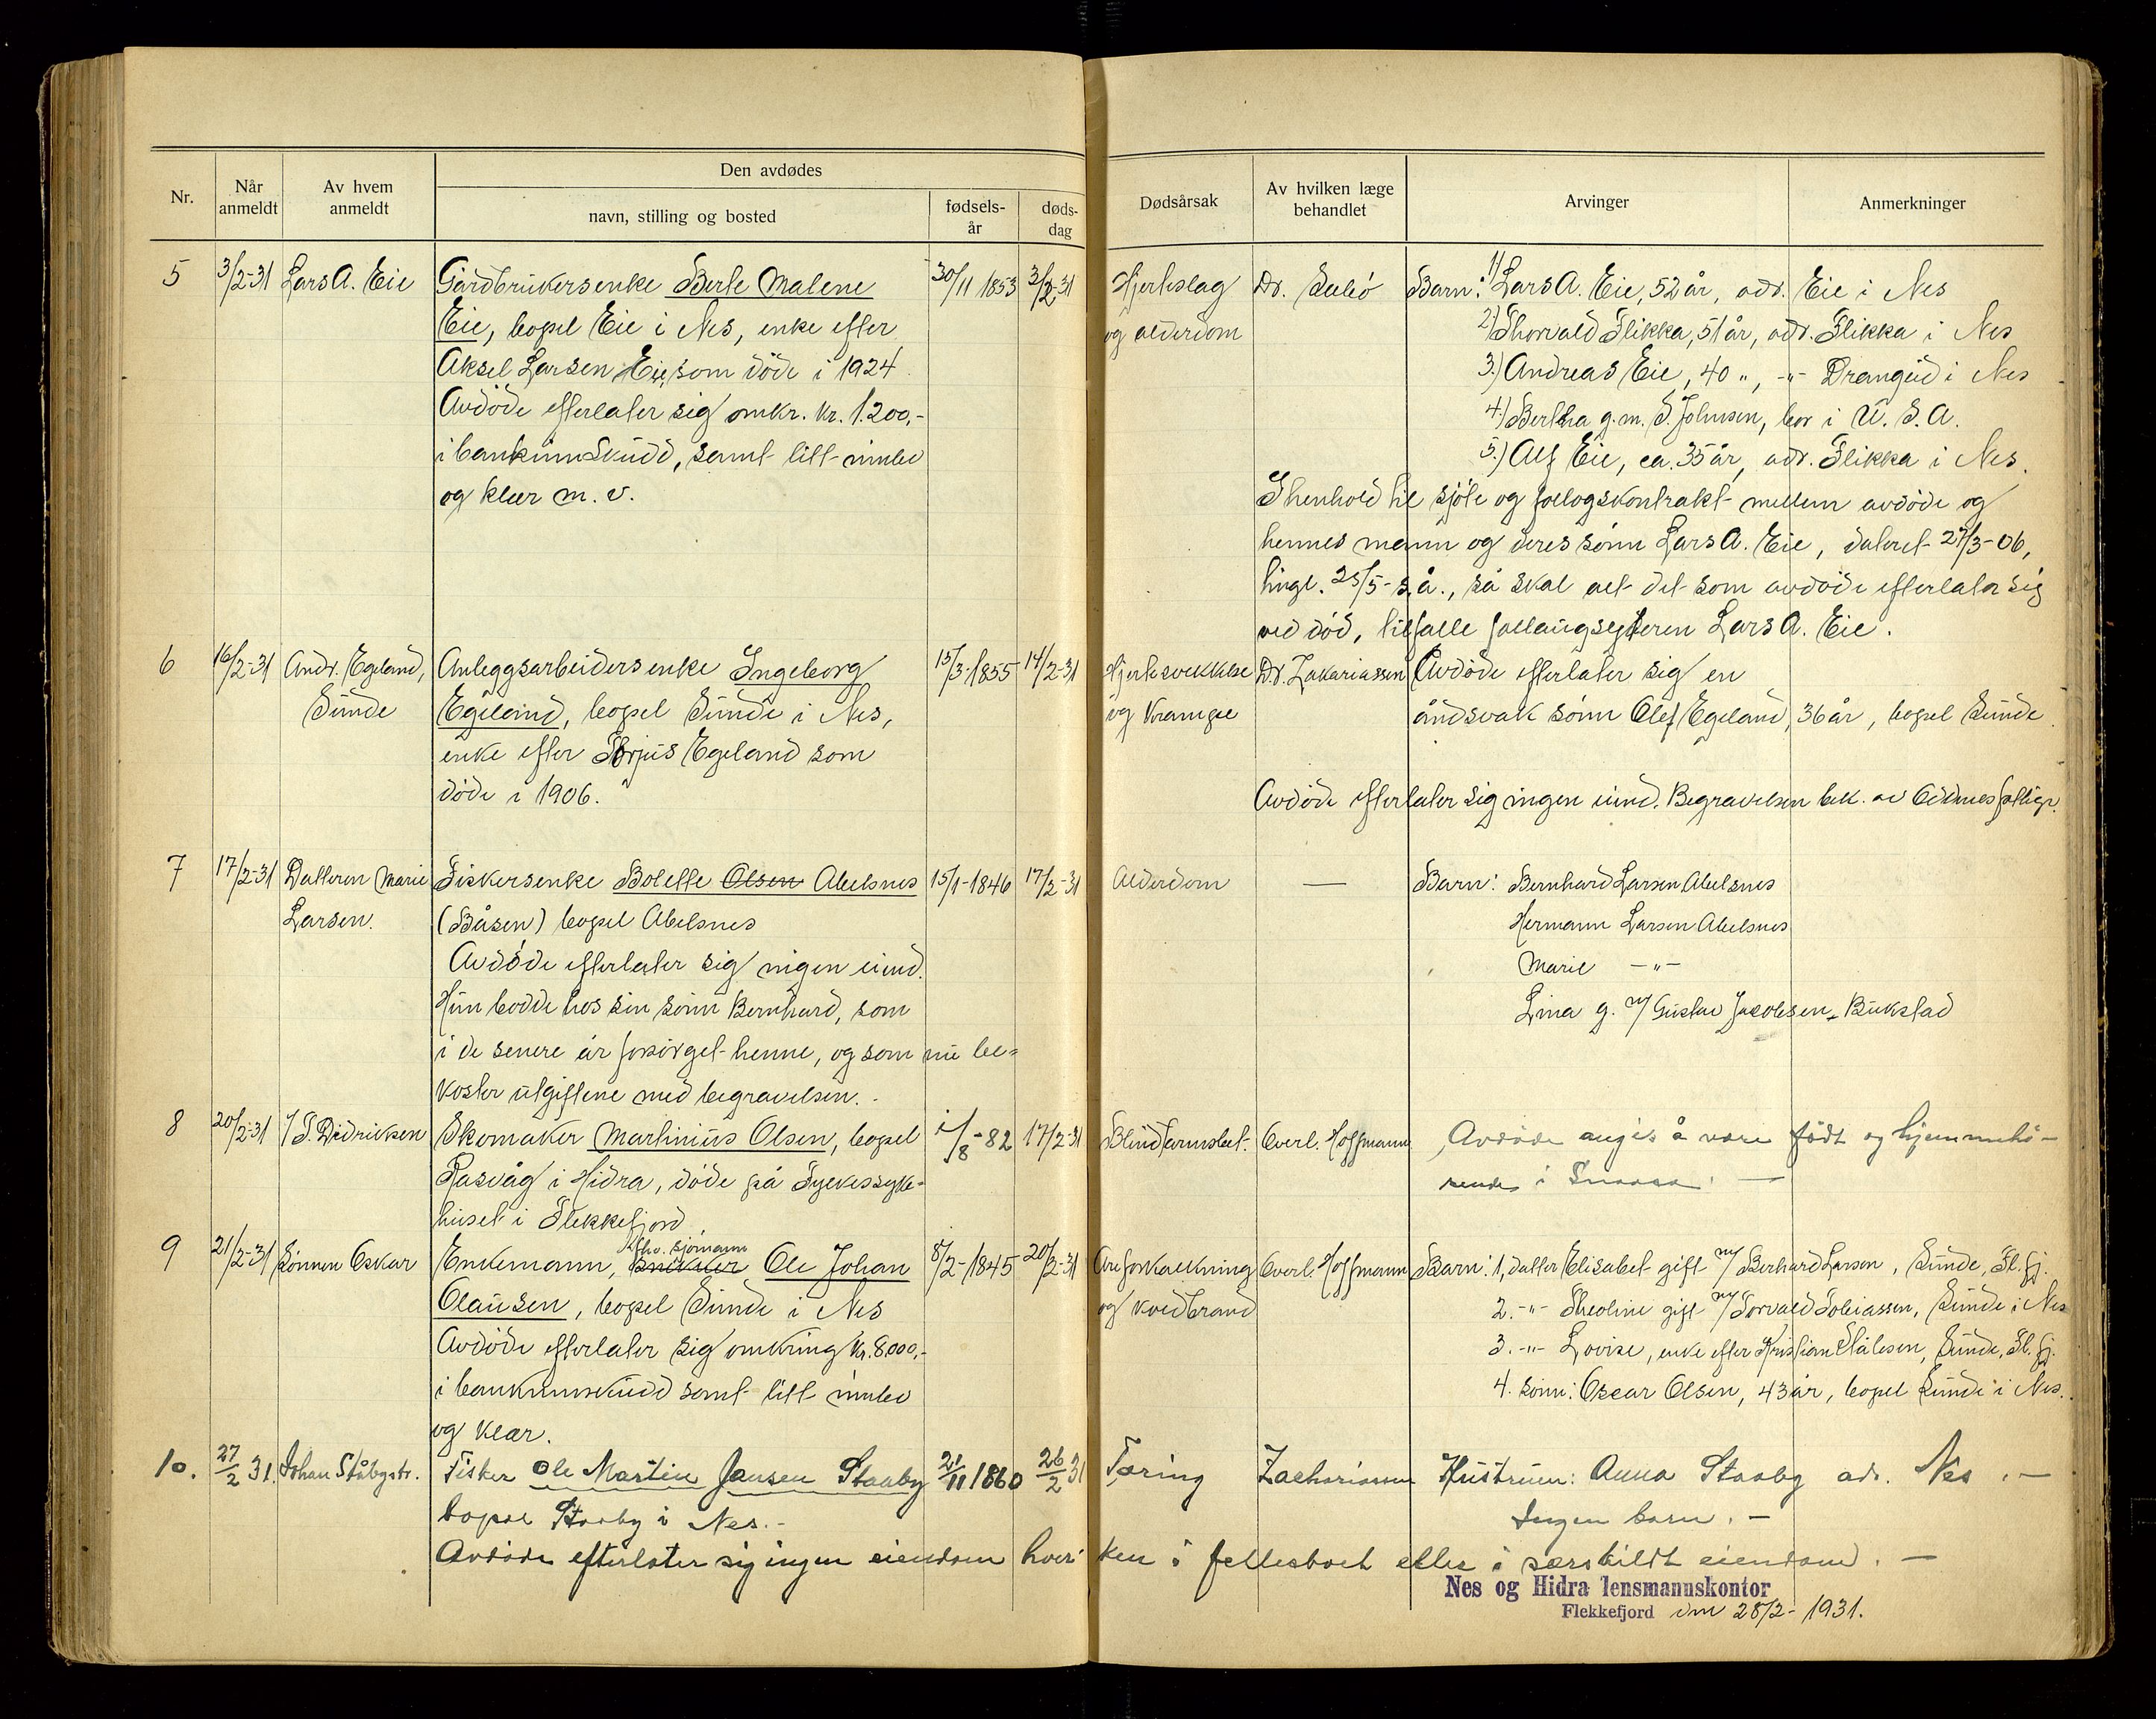 Nr.
Når anmeldt
Av hvem anmeldt
Den avdødes
navn, stilling og bosted
fødsels-år
døds-dag
Dødsårsak
Av hvilken læge behandlet
Arvinger
Anmerkninger
5 3/2-31 Lars A. Eie Gårdbrukersenke Berte Malene 30/11 1853 3/2-31 Hjerteslag Dr. Barn: 1) Lars A. Eie, 52 år, adr. Eie i Nes
Eie, bopel Eie i Nes, enke efter og alderdom 2) Thorvald Flikka, 51 år, adr. Flikka i Nes
Aksel Larsen Eie, som døde i 1924. 3.) Andreas Eie, 40 ", -"- Drangeid i Nes
Avdøde efterlater sig omkr. kr. 1.200,- 4.) Bertha g.m. S. Johnsen, bor i U.S.A.
i bankinnskudd, samt litt innbo 5.) Alf Eie, ca. 35 år, adr. Flikka i Nes.
og klær m.v. I henhold til skjøte og follogskontrakt mellem avdøde og
hennes mann og deres sønn Lars A. Eie, datert 27/3-06,
tingl. 25/5- s.å., så skal alt det som avdøde efterlater sig
ved død, tilfalle follaugsyteren Lars A. Eie.
6 16/2-31 Andr. Egeland, Anleggsarbeidersenke Ingeborg 15/3-1855 14/2-31 Hjertesvekkelse Dr. Zakariassen Avdøde efterlater sig en
Sunde Egeland, bopel Sunde i Nes, og Krampe åndsvak sønn Olef Egeland, 36 år, bopel Sunde.
enke efter Torjus Egeland som
døde i 1906. Avdøde efterlater sig ingen eiend. Begravelsen bek. av Oddnes fattigv.
7 17/2-31 Datteren Marie Fiskersenke Bolette Olsen Abelsnes 15/1-1846 17/2-31 Alderdom — Barn: Bernhard Larsen Abelsnes
Larsen. (Båsen) bopel Abelsnes Hermann Larsen Abelsnes
Avdøde efterlater sig ingen eiend. Marie -"-
Hun bodde hos sin sønn Bernhard, som Lina g. m/ Gustav Jacobsen, Bukstad
i de senere år forsørget henne, og som nu be-
koster utgiftene med begravelsen.
8 20/2-31 T. Didriksen Skomaker Martinius Olsen, bopel /8-82 17/2-31 Blindtarmsbet. Overl. Hoffmann Avdøde angis å være født og hjemmehø-
Rasvåg i Hidra, døde på Fylkessyke- rende i
huset i Flekkefjord.
9 21/2-31 Sønnen Oskar Enkemann, snikker fhv. sjømann Ole Johan 8/2-1845 20/2-31 Åreforkalkning Overl. Hoffmann Barn: 1, datter Elisabet gift m/ Berhard Larsen, Sunde, Fl.fj.
Olausen, bopel Sunde i Nes og koldbrand 2. -"- Theoline gift m/ Torvald Tobiassen, Sunde i Nes
Avdøde efterlater sig omkring kr. 8.000,- 3. -"- Lovise, enke efter Kristian Stålesen, Sunde, Fl.fj.
i bankinnskudd samt litt innbo 4. sønn: Oscar Olsen, 43 år, bopel Sunde i Nes.
og klær.
10. 27/2 31. Johan Fisker Ole Martin Jansen Staaby 21/11 1860 26/2 31 Tæring Zachariassen Hustruen: Anna Staaby adr. Nes. -
bopæl Staaby i Nes. - Ingen barn. -
Avdøde efterlater sig ingen eiendom hver- ken i fellesboet eller i særskildt eiendom. -
Nes og Hidra lensmannskontor
Flekkefjord den 28/2- 1931.